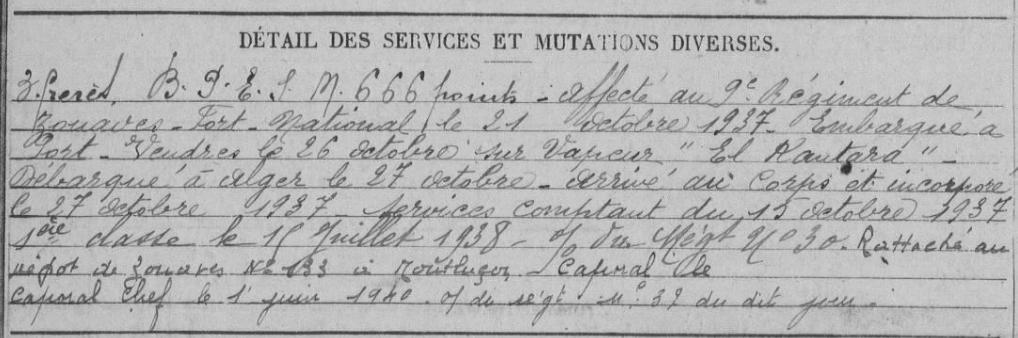 DÉTAIL DES SERVICES ET MUTATIONS DIVERSES.
3 frères. B. P. E. S. M. 666 points - affecté au 9e Régiment de
Zouaves - Fort - National le 21 octobre 1937 - Embarqué à
Port - Vendres le 26 octobre sur Vapeur " El Kantara " -
Débarqué à Alger le 27 octobre - arrivé au Corps et incorporé
le 27 octobre 1937 services comptant du 15 octobre 1937
1ère classe le 15 Juillet 1938 - o/ du Régt No 30. Rattaché au
dépôt de Zouaves No 133 à Montluçon - Caporal le
Caporal Chef le 1er juin 1940. o/ du régt no 32 du dit jour.